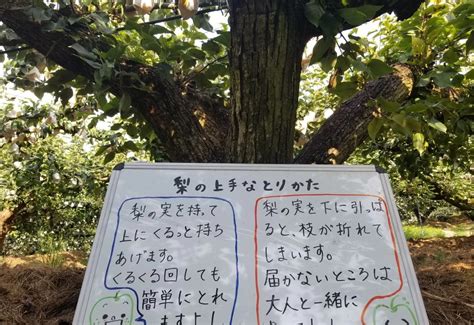 梨の上手なとりかた
梨の実を持って
上にくるっと持ち
あげます。
くるくる回しても
簡単にとれ
ますよ！
梨の実を下に引っぱ
ると、枝が折れて
しまいます。
届かないところは
大人と一緒に